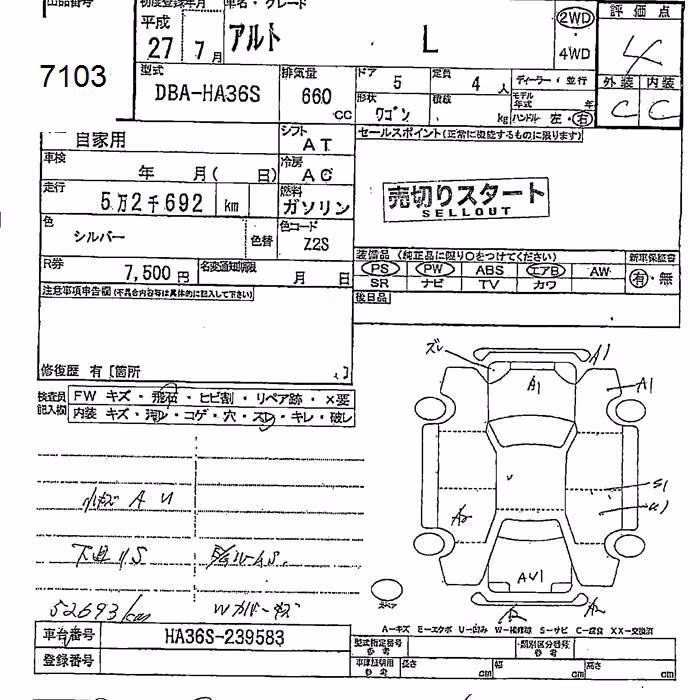 出品番号 初度登録年月 車名・グレード 評価点
平成 27 7月 アルト L 2WD ・ 4WD 4
7103
型式 排気量 ドア 5 定員 4 人 ディーラー / 並行 外装 内装
DBA-HA36S 660 CC 形状 ワゴン 積載 kg モデル年式 年 C C
ハンドル 左・右
自家用 シフト AT セールスポイント(正常に機能するものに限ります)
車検 年 月( 日) 冷房 AC
走行 5万2千692 km 燃料 ガソリン 売切りスタート
SELLOUT
色 シルバー 色替 色コード Z2S
装備品(純正品に限り○をつけてください) 新車保証書
R券 7,500円 名変通知期限 月 日 PS PW ABS エアB AW 有・無
SR ナビ TV カワ
注意事項申告欄(不具合内容等は具体的に記入して下さい) 後日品
修復歴 有 [箇所 ]
検査員記入欄 FW キズ・飛石・ヒビ割・リペア跡・×要
内装 キズ・汚れ・コゲ・穴・スレ・キレ・破レ
ズレ A1
A1 A1
S1
小キズ A U U1
A2
下廻りS
AU1
52693km Wカバーキズ
A2
A-キズ E-エクボ U-凹み W-補修跡 S-サビ C-腐食 XX-交換済
車台番号 HA36S-239583 型式指定番号 参考 類別区分番号 参考
登録番号 車庫証明用 参考 長さ cm 幅 cm 高さ cm